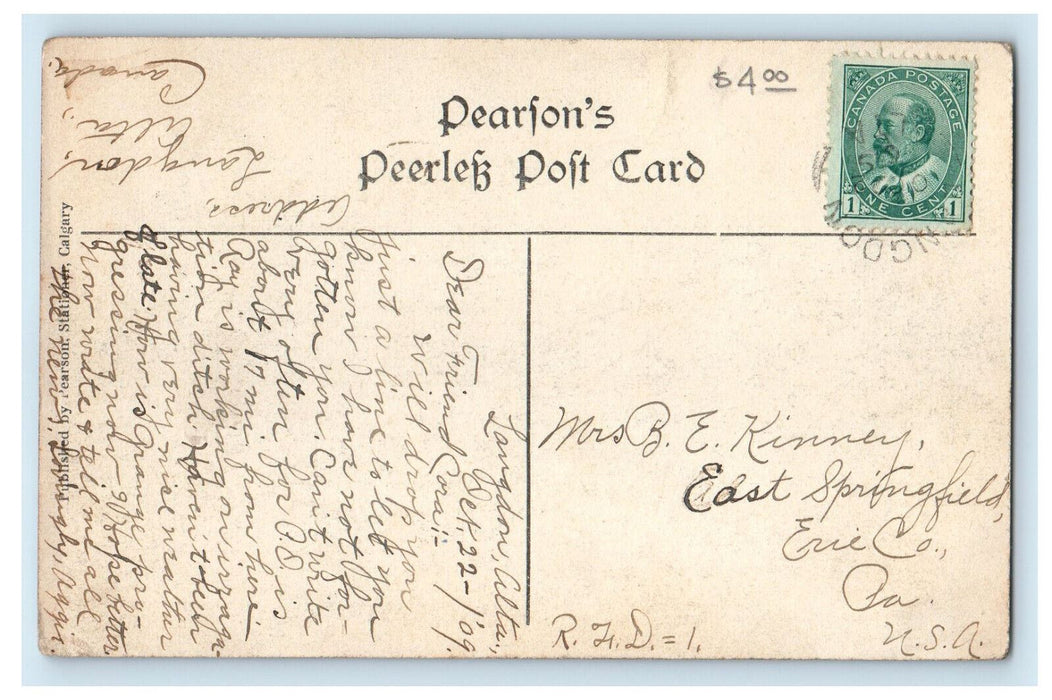 $4.00
Pearſon's
Peerleß Poſt Card
CANADA POSTAGE
1 ONE CENT 1
NGDO
Published by Pearson, Stationer, Calgary
Langdon, Alta.,
Oct, 22-/'09.
Dear Friend Cora:-
Will drop you
just a line to let you
know I have not for-
gotten you. Can't write
very often for P.O. is
about 17 mi. from here
Ray is working on irriga-
tion ditch. Haven't been
having very nice weather
of late. How is Grange pro-
gressing now? Hope better
Now write & tell me all
the news, Lovingly,
Address,
Langdon,
Alta.,
Canada.
Mrs B. E. Kinney,
East Springfield,
Erie Co.,
Pa.
R. F. D. = 1.
U.S.A.